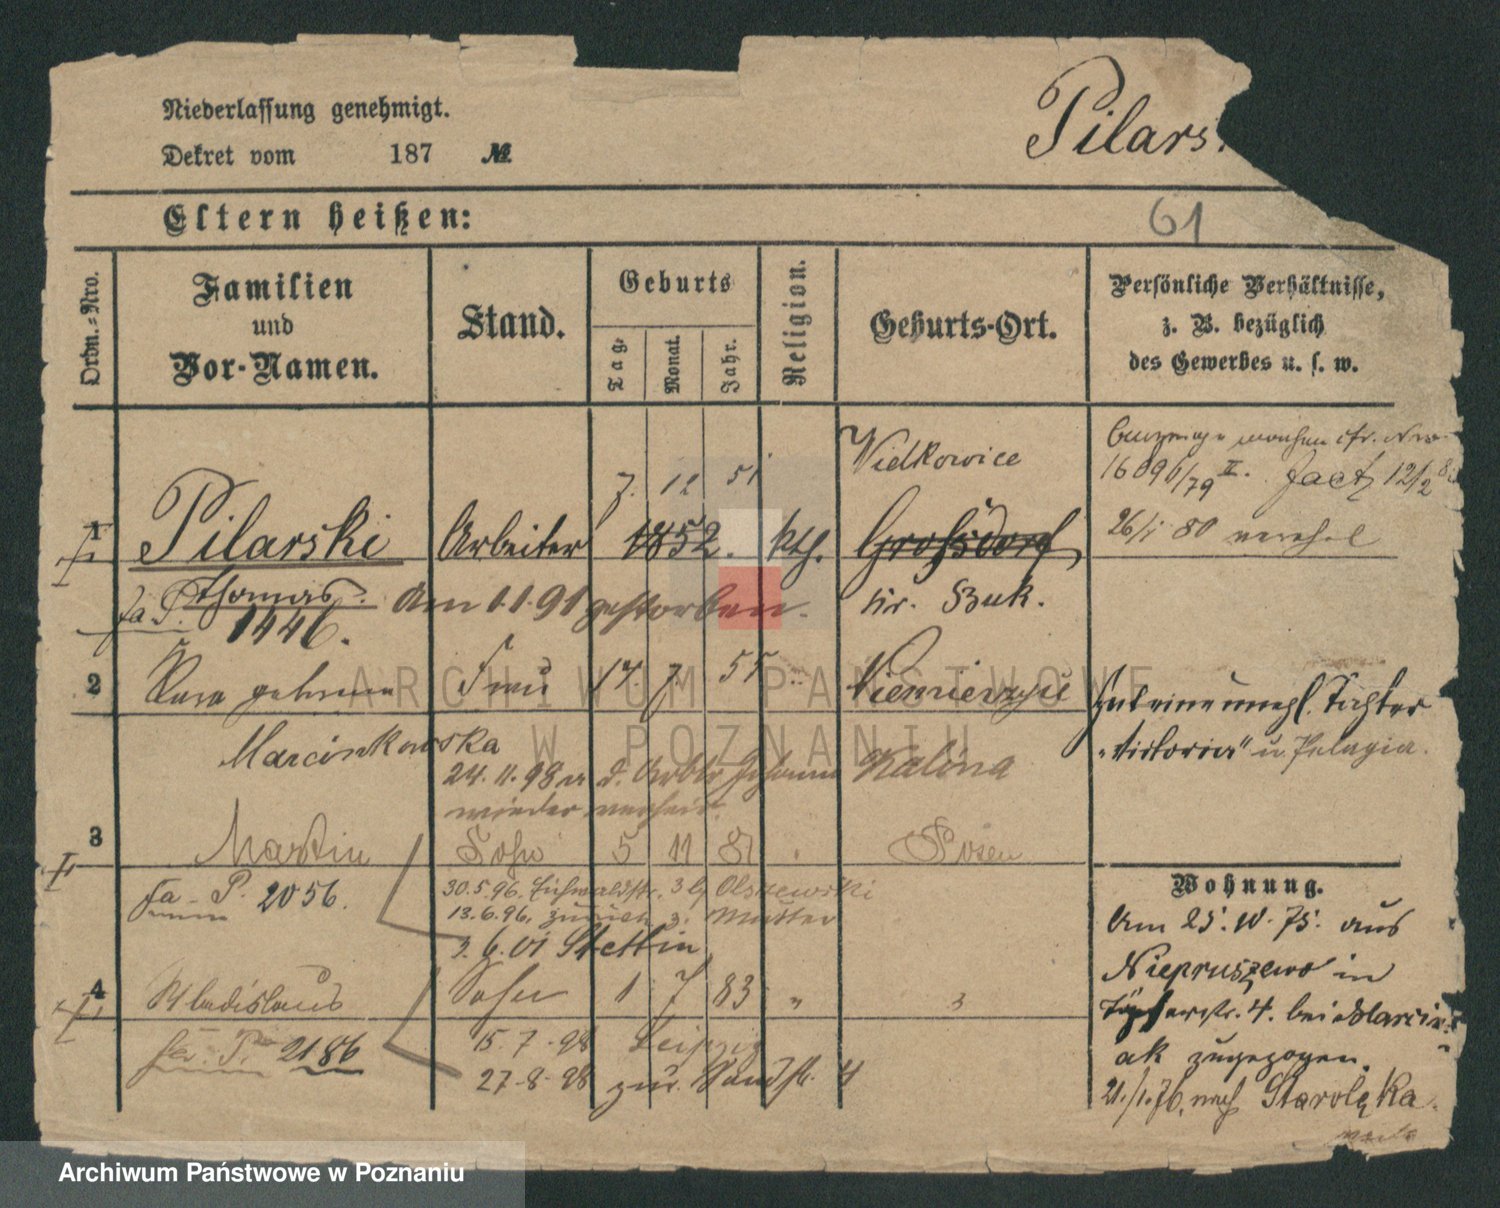 Niederlassung genehmigt.
Dekret vom 187 №
Pilars
Eltern heißen:
61
Ordn.-Nro.
Familien
und
Vor-Namen.
Stand.
Geburts
Tag.
Monat.
Jahr.
Religion.
Geburts-Ort.
Persönliche Verhältnisse,
z. B. bezüglich
des Gewerbes u. s. w.
7. 12 51 Wielkowice
16096/79 II. 12/2
1 Pilarski Arbeiter 1852. kth. Großsdorf 26/1 80
Thomas. Am 1.1.91 gestorben. Kr. Buk.
fa P. 1446.
2 geborene Frau 14. 7 55
Marcinkowska
24.11.98 d. Arbtr Johann Kalina
wieder verheir.
Tichter
"Victoria" u Pelagia.
3 Martin Sohn 5 11 81 Posen
Fa. P. 2056.
30.5.96. Eichwaldstr. 3 b/ Olszewski
13.6.96. zurück z. Mutter
3.6.01 Stettin
Wohnung.
Am 25. 75. aus
Niepruszewo in
4. bei Marcin-
ak zugezogen.
21./1.76. nach Starolęka.
4 Wladislaus Sohn 1 7 83 " 3
fa. P. 2186
15.7.98 Leipzig
27.8.98 zur. Sandstr. 4
ARCHIWUM PAŃSTWOWE
W POZNANIU
Archiwum Państwowe w Poznaniu